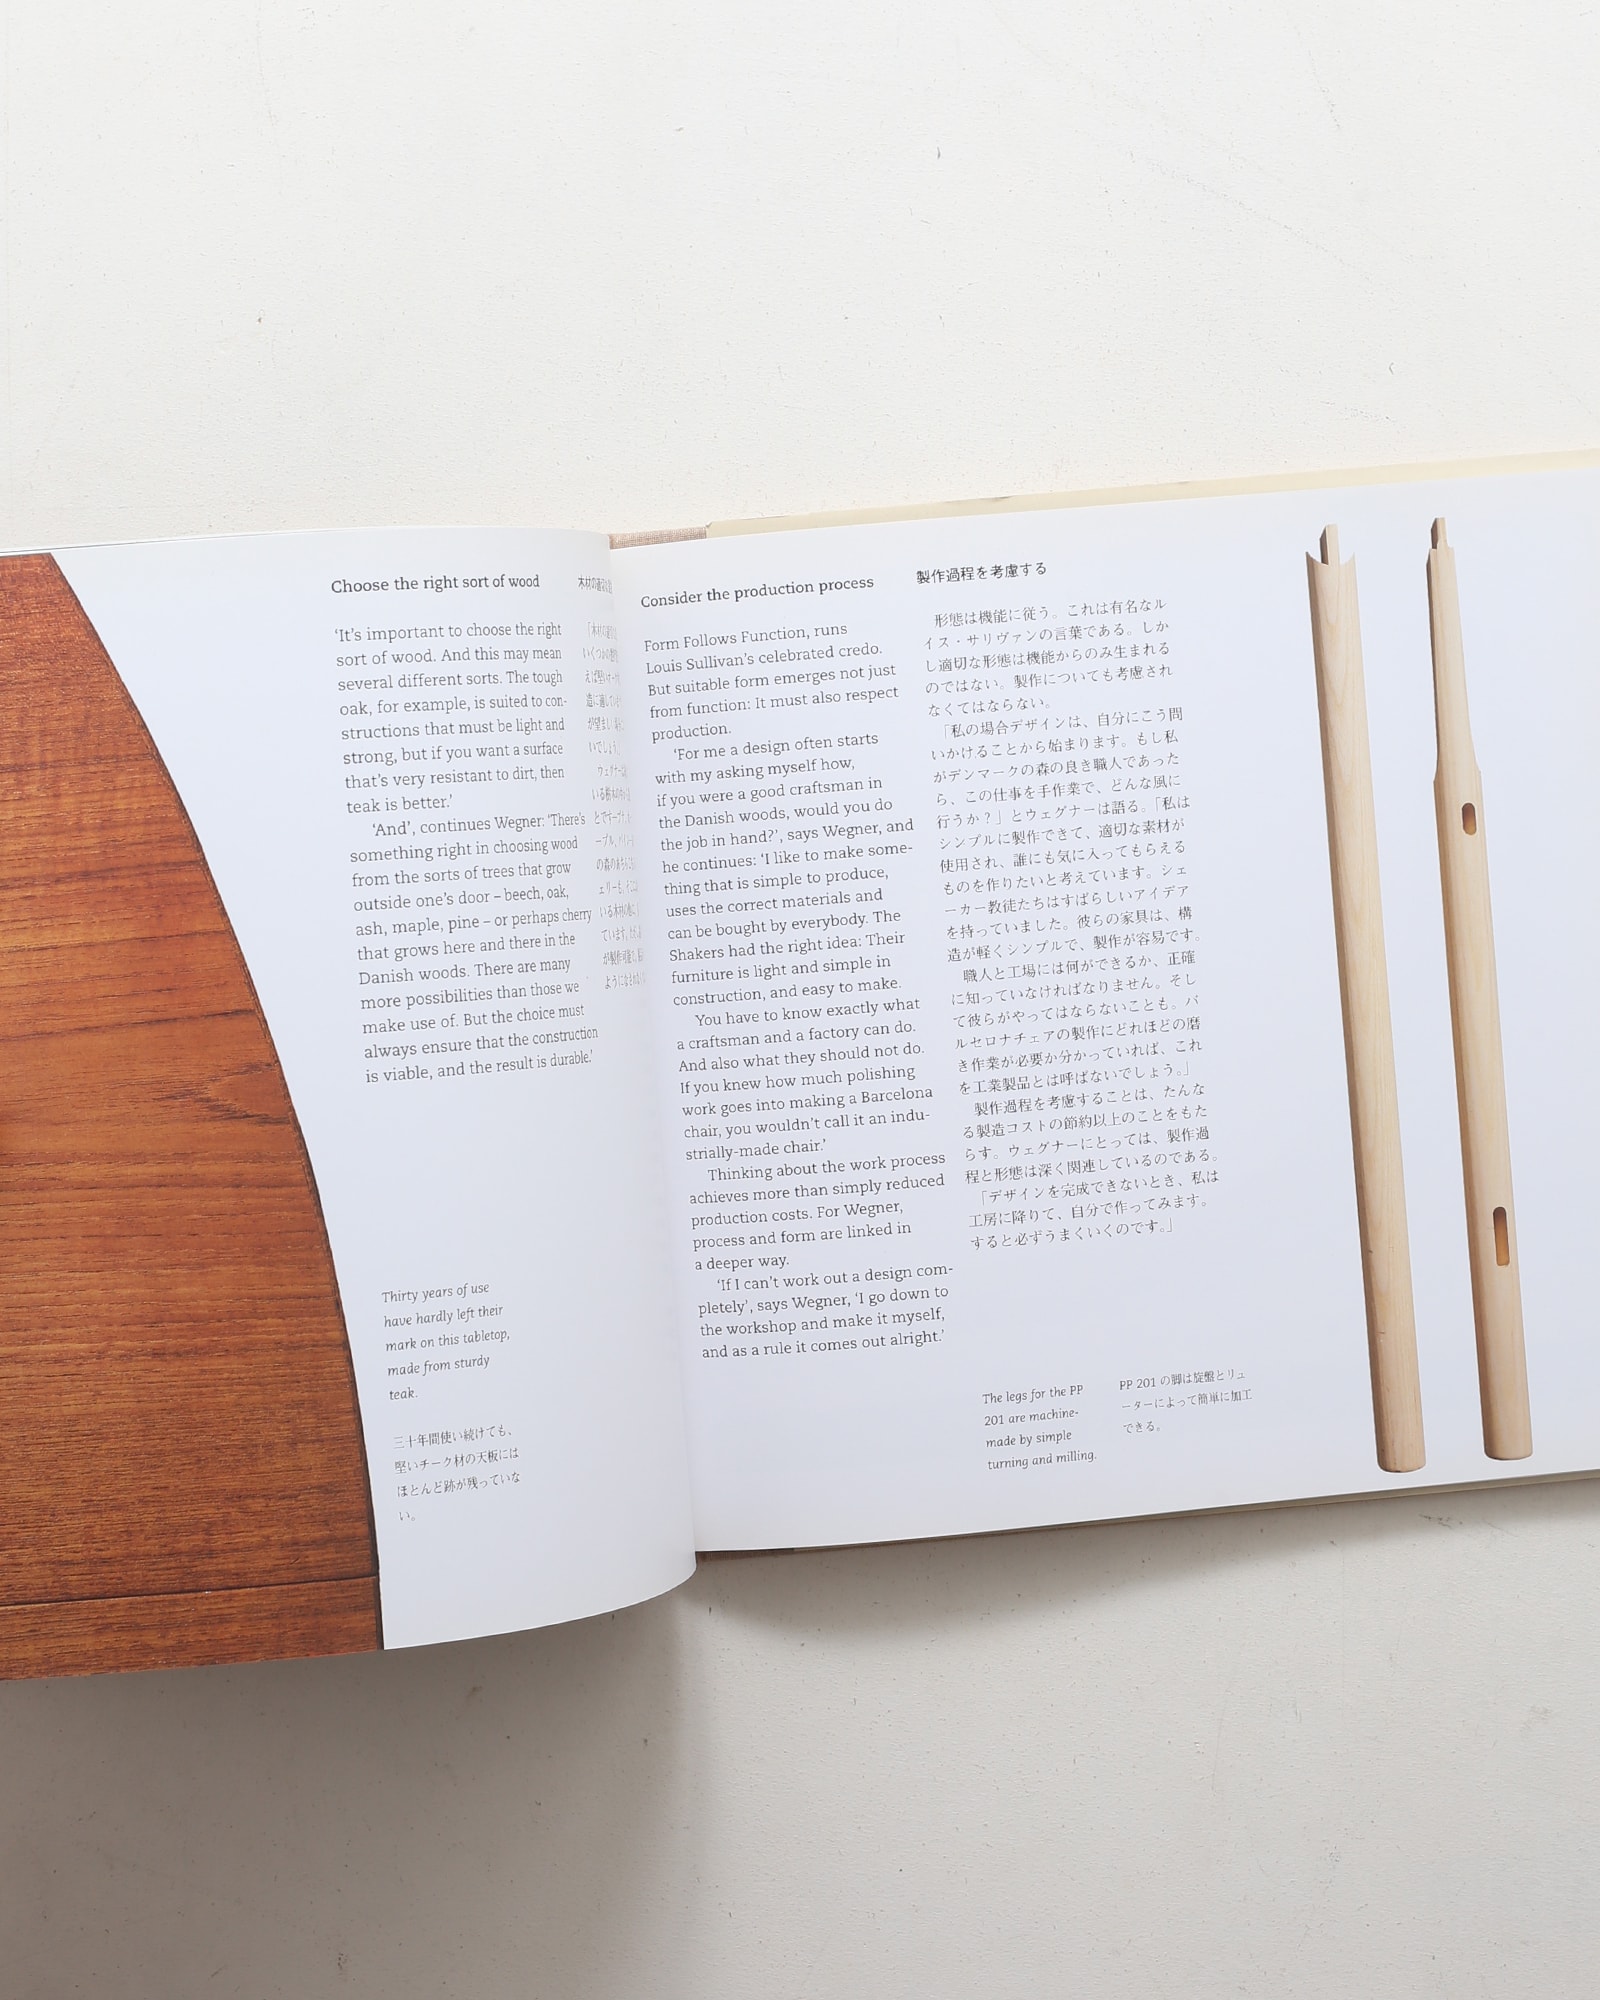 Choose the right sort of wood
‘It’s important to choose the right
sort of wood. And this may mean
several different sorts. The tough
oak, for example, is suited to con-
structions that must be light and
strong, but if you want a surface
that’s very resistant to dirt, then
teak is better.’
‘And’, continues Wegner: ‘There’s
something right in choosing wood
from the sorts of trees that grow
outside one’s door – beech, oak,
ash, maple, pine – or perhaps cherry
that grows here and there in the
Danish woods. There are many
more possibilities than those we
make use of. But the choice must
always ensure that the construction
is viable, and the result is durable.’
Thirty years of use
have hardly left their
mark on this tabletop,
made from sturdy
teak.
三十年間使い続けても、
堅いチーク材の天板には
ほとんど跡が残っていな
い。
Consider the production process
Form Follows Function, runs
Louis Sullivan’s celebrated credo.
But suitable form emerges not just
from function: It must also respect
production.
‘For me a design often starts
with my asking myself how,
if you were a good craftsman in
the Danish woods, would you do
the job in hand?’, says Wegner, and
he continues: ‘I like to make some-
thing that is simple to produce,
uses the correct materials and
can be bought by everybody. The
Shakers had the right idea: Their
furniture is light and simple in
construction, and easy to make.
You have to know exactly what
a craftsman and a factory can do.
And also what they should not do.
If you knew how much polishing
work goes into making a Barcelona
chair, you wouldn’t call it an indu-
strially-made chair.’
Thinking about the work process
achieves more than simply reduced
production costs. For Wegner,
process and form are linked in
a deeper way.
‘If I can’t work out a design com-
pletely’, says Wegner, ‘I go down to
the workshop and make it myself,
and as a rule it comes out alright.’
製作過程を考慮する
形態は機能に従う。これは有名なル
イス・サリヴァンの言葉である。しか
し適切な形態は機能からのみ生まれる
のではない。製作についても考慮され
なくてはならない。
「私の場合デザインは、自分にこう問
いかけることから始まります。もし私
がデンマークの森の良き職人であった
ら、この仕事を手作業で、どんな風に
行うか？」とウェグナーは語る。「私は
シンプルに製作できて、適切な素材が
使用され、誰にも気に入ってもらえる
ものを作りたいと考えています。シェ
ーカー教徒たちはすばらしいアイデア
を持っていました。彼らの家具は、構
造が軽くシンプルで、製作が容易です。
職人と工場には何ができるか、正確
に知っていなければなりません。そし
て彼らがやってはならないことも。バ
ルセロナチェアの製作にどれほどの磨
き作業が必要か分かっていれば、これ
を工業製品とは呼ばないでしょう。」
製作過程を考慮することは、たんな
る製造コストの節約以上のことをもた
らす。ウェグナーにとっては、製作過
程と形態は深く関連しているのである。
「デザインを完成できないとき、私は
工房に降りて、自分で作ってみます。
すると必ずうまくいくのです。」
The legs for the PP
201 are machine-
made by simple
turning and milling.
PP 201 の脚は旋盤とリュ
ーターによって簡単に加工
できる。